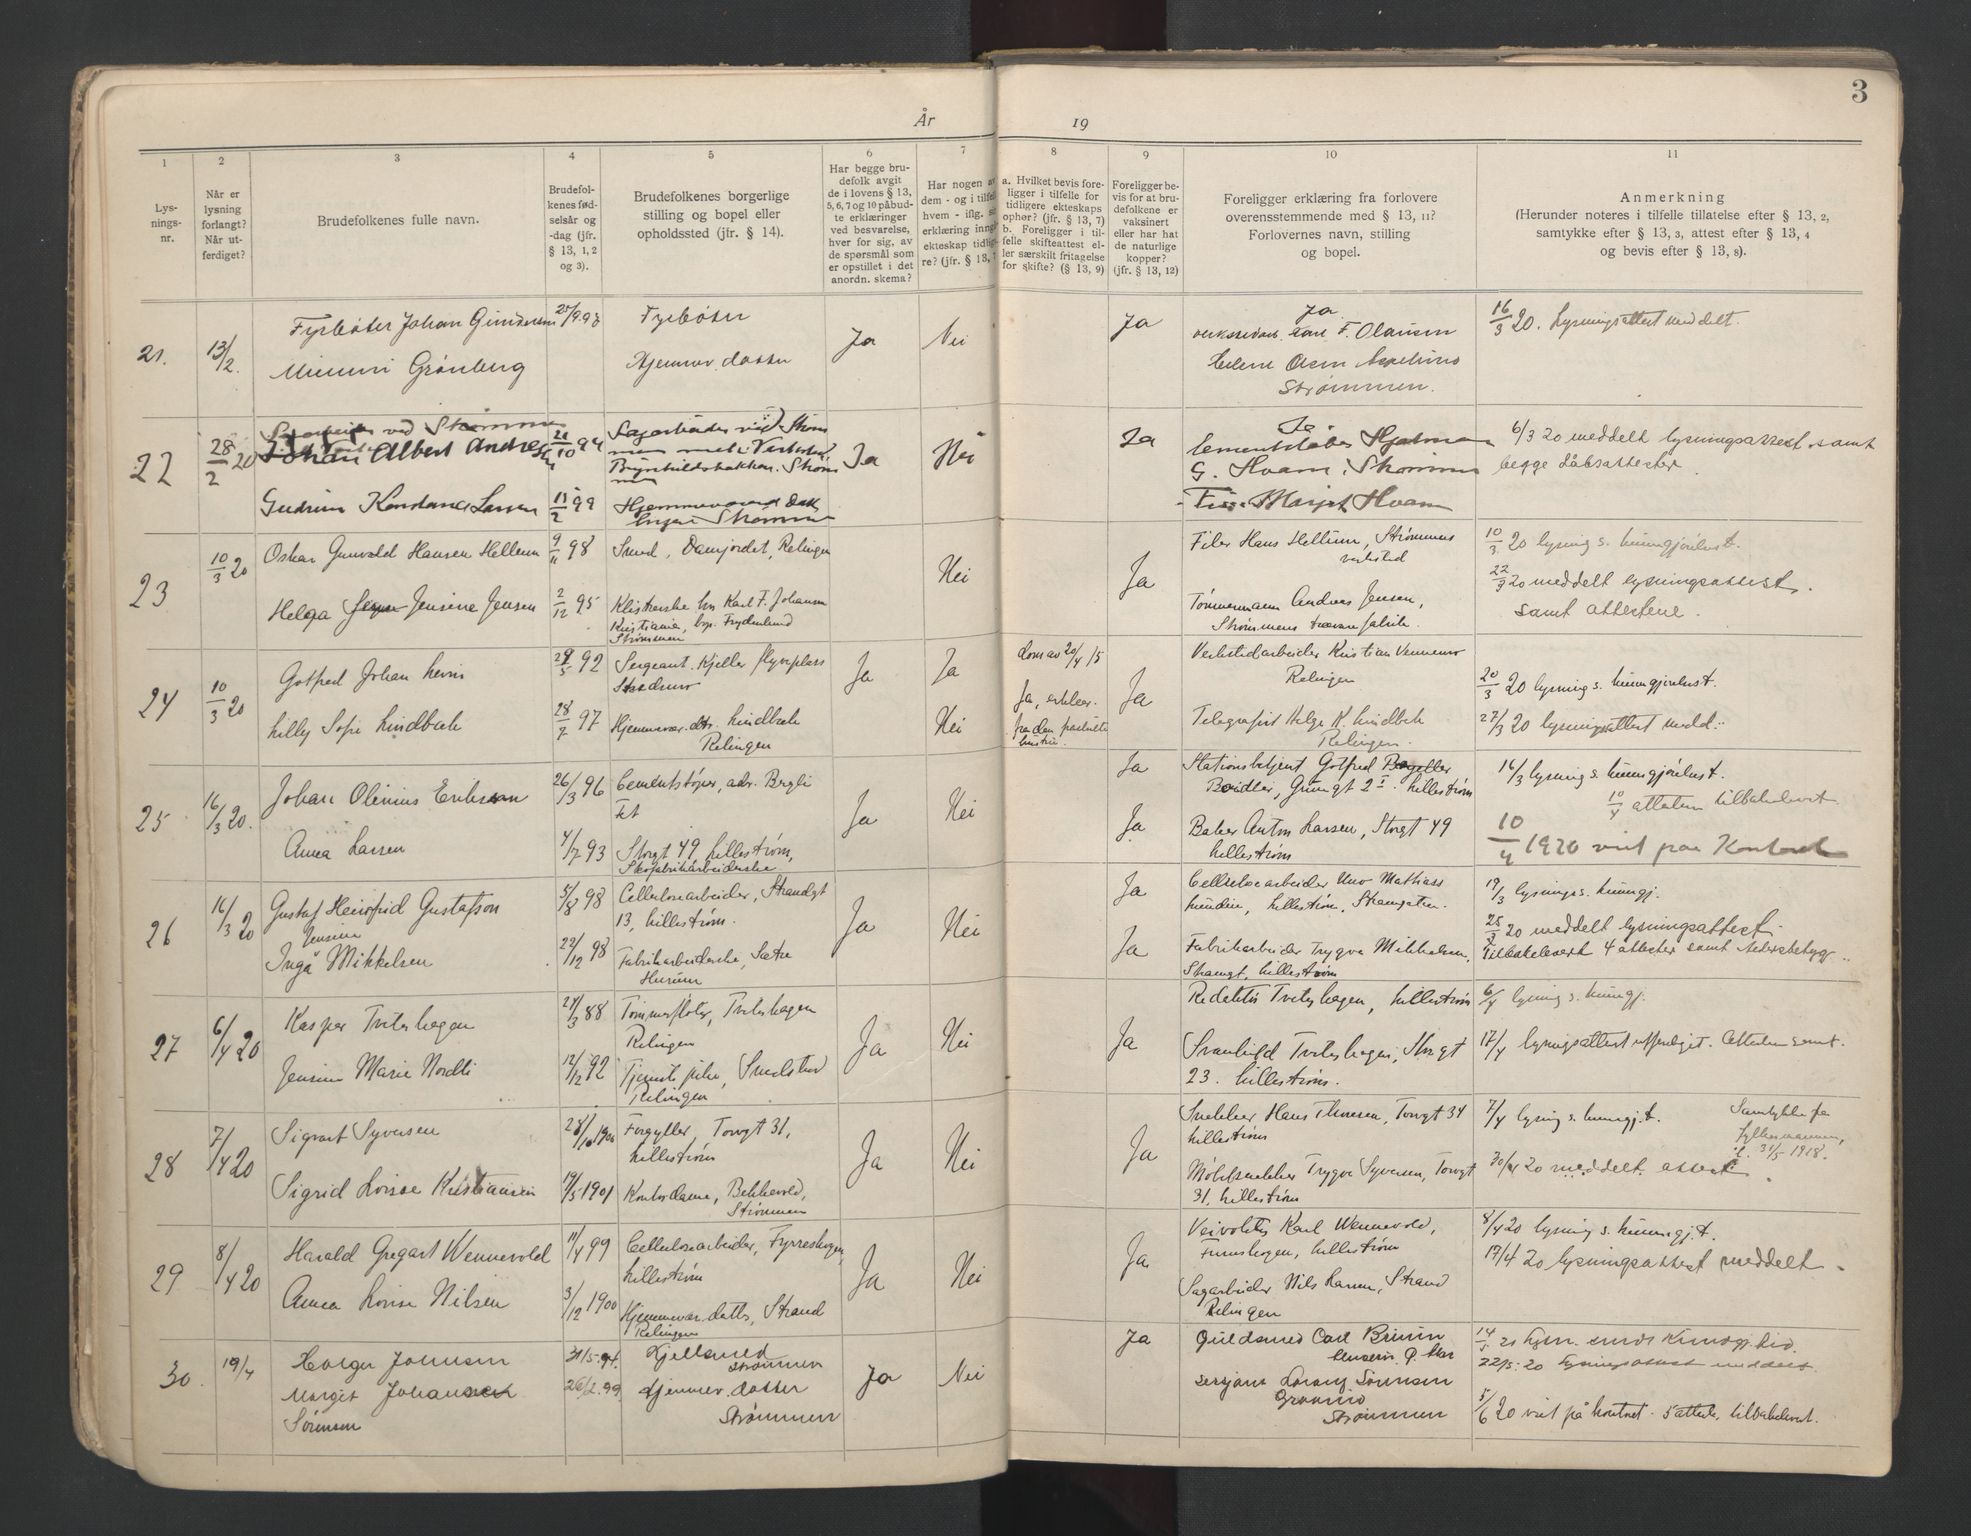 3
År
19
1
2
3
4
5
6
7
8
9
10
11
Lys-
nings-
nr.
Når er
lysning
forlangt?
Når ut-
ferdiget?
Brudefolkenes fulle navn.
Brudefol-
kenes fød-
selsår og
-dag (jfr.
§ 13, 1, 2
og 3).
Brudefolkenes borgerlige
stilling og bopel eller
opholdssted (jfr. § 14).
Har begge bru-
defolk avgit
de i lovens § 13,
5, 6, 7 og 10 påbud-
te erklæringer
ved besvarelse,
hver for sig, av
de spørsmål som
er opstillet i det
anordn. skema?
Har nogen av
dem - og i tilfel
hvem - iflg. si
erklæring inngå
ekteskap tidlig-
re? (jfr. § 13,
a. Hvilket bevis fore-
ligger i tilfelle for
tidligere ekteskaps
ophør? (jfr. § 13, 7)
b. Foreligger i til-
felle skifteattest el-
ler særskilt fritagelse
for skifte? (§ 13, 9)
Foreligger be-
vis for at bru-
defolkene er
vaksinert
eller har hat
de naturlige
kopper?
(jfr. § 13, 12)
Foreligger erklæring fra forlovere
overensstemmende med § 13, 11?
Forlovernes navn, stilling
og bopel.
Anmerkning
(Herunder noteres i tilfelle tillatelse efter § 13, 2,
samtykke efter § 13, 3, attest efter § 13, 4
og bevis efter § 13, 8).
21.
13/2.
Fyrbøter Johan Gundersen
Minni Grønberg
Fyrbøter
Hjemmev. datter
Ja
Nei
Ja
Ja
Karl F. Olausen
Helene Olsen
Strømmen.
16/3 20. Lysningsattest meddelt.
22
28/2 20
Johan Albert Andresen
Gudrun Konstance Larsen
21/10 94
11/2 99
Sagarbeider ved Strøm
men
Brynhildsbakken. Strøm
men
Hjemmeværende Datt
Strømmen
Ja
Nei
Ja
Ja
Cementstøber Hjalmar
G. Hvam, Strømmen
Margit Hvam
6/3 20 meddelt lysningsattest samt
begge dåbsattester
23
10/3 20
Oskar Gunvald Hansen Hellum
Helga Jensine Jensen
9/11 98
2/12 95
Smed, Damjordet, Relingen
Klisterske hos Karl F. Johansen
Kristiania, bop. Frydenlund
Strømmen
Nei
Ja
Filer Hans Hellum, Strømmens
verksted
Tømmermann Andreas Jensen,
Strømmens trævarefabrik.
10/3 20 lysning s. kunngjørelest.
22/3 20 meddelt lysningsattest.
samt attestene.
24
10/3 20
Gotfred Johan Levin
Lilly Sofie Lindbæk
29/5 92
28/7 97
Sergeant. Kjeller flyveplass
Hjemmevær. dtr. Lindbæk
Relingen
Ja
Ja
Nei
dom av 20/4 15
Ja, erklær.
fra den fraskilte
hustru.
Ja
Verkstedarbeider Kristian
Relingen
Telegrafist Helge K. Lindbæk
Relingen.
20/3 20 lysning s. kunngjørelest.
27/3 20 lysningsattest medd.
25
16/3 20.
Johan Olinius Eriksson
Anna Larsen
26/3 96
4/7 93
Cementstøper, adr. Bergli
Fet
Storgt 49 Lillestrøm,
Skofabrikarbeiderske
Ja
Nei
Ja
Ja
Stationsbetjent Gotfred
Lillestrøm
Baker Anton Larsen, Storgt 49
Lillestrøm
16/3 lysning s. kunngjørelest.
10/4 attesten tilbakelevert
10/4 1920 viet paa Kontoret
26
16/3 20
Gustaf Heinfrid Gustafson
Jensine
Inga Mikkelsen
5/8 98
22/12 98
Cellulosearbeider, Strandgt
13, Lillestrøm.
Fabrikarbeiderske, Sætre
Hurum
Ja
Nei
Ja
Ja
Cellulosearbeider Uno Mathias
Lundin, Lillestrøm, Skamgaten.
Fabrikarbeider Trygve Mikkelsen,
Skamgt, Lillestrøm
19/3 lysnings. kunngj.
25/3 20 meddelt lysningsattest
Tilbakelevert 4 attester samt
27
6/4 20
Kasper Tviterhagen
Jensine Marie Nordli
27/3 88
12/12 92
Tømmerfløter, Tviterhagen
Relingen
Tjenestepike, Smedstad
Relingen
Ja
Nei
Ja
Tviterhagen, Lillestrøm
Svanhild Tviterhagen, Storgt
23. Lillestrøm.
6/4 lysning s. kunngj.
17/4 lysningsattest utferdiget. Attesten samt.
28
7/4 20
Sigvart Syversen
Sigrid Lovise Kristiansen
28/10 1900
19/5 1901
Forgyller, Torvgt 31,
Lillestrøm
Kontordame, Bekkevold,
Strømmen
Ja
Nei
Ja
Snekker Hans Thoresen, Torvgt 34
Lillestrøm
Møbelsnekker Trygve Syversen, Torvgt
31, Lillestrøm
7/4 lysning s. kunngj.t.
Samtykke fra
Fylkesmannen,
31/5 1918.
30/4 20 meddelt attest
29
8/4 20
Harald Gregart Wennevold
Anna Lovise Nilsen
11/4 99
3/12 1900
Cellulosearbeider, Fyrreshagen,
Lillestrøm
Hjemmevær. datter, Strand
Relingen
Ja
Nei
Ja
Veivokter Karl Wennevold,
Lillestrøm
Sagarbeider Nils Larsen, Strand
Relingen
8/4 20 lysning s. kunngj.t.
19/4 20 lysningsattest meddelt
30
19/4
Holger Johnsen
Margit Johansen
Sørensen
31/5.94.
26/2.99
Gjellsmed
Strømmen
Hjemmev. datter
Strømmen
Ja
Nei
Ja
Guldsmed Carl Bruun
Sersjant Sørensen
Strømmen
22/5.20 lysningsattest meddelt
5/6 20 viet på kontoret. 5 attester tilbakelevert.